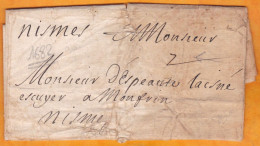 nismes A Monsieur
2
Monsieur d'Espeaute laisné
escuyer a Monfrin
nisme